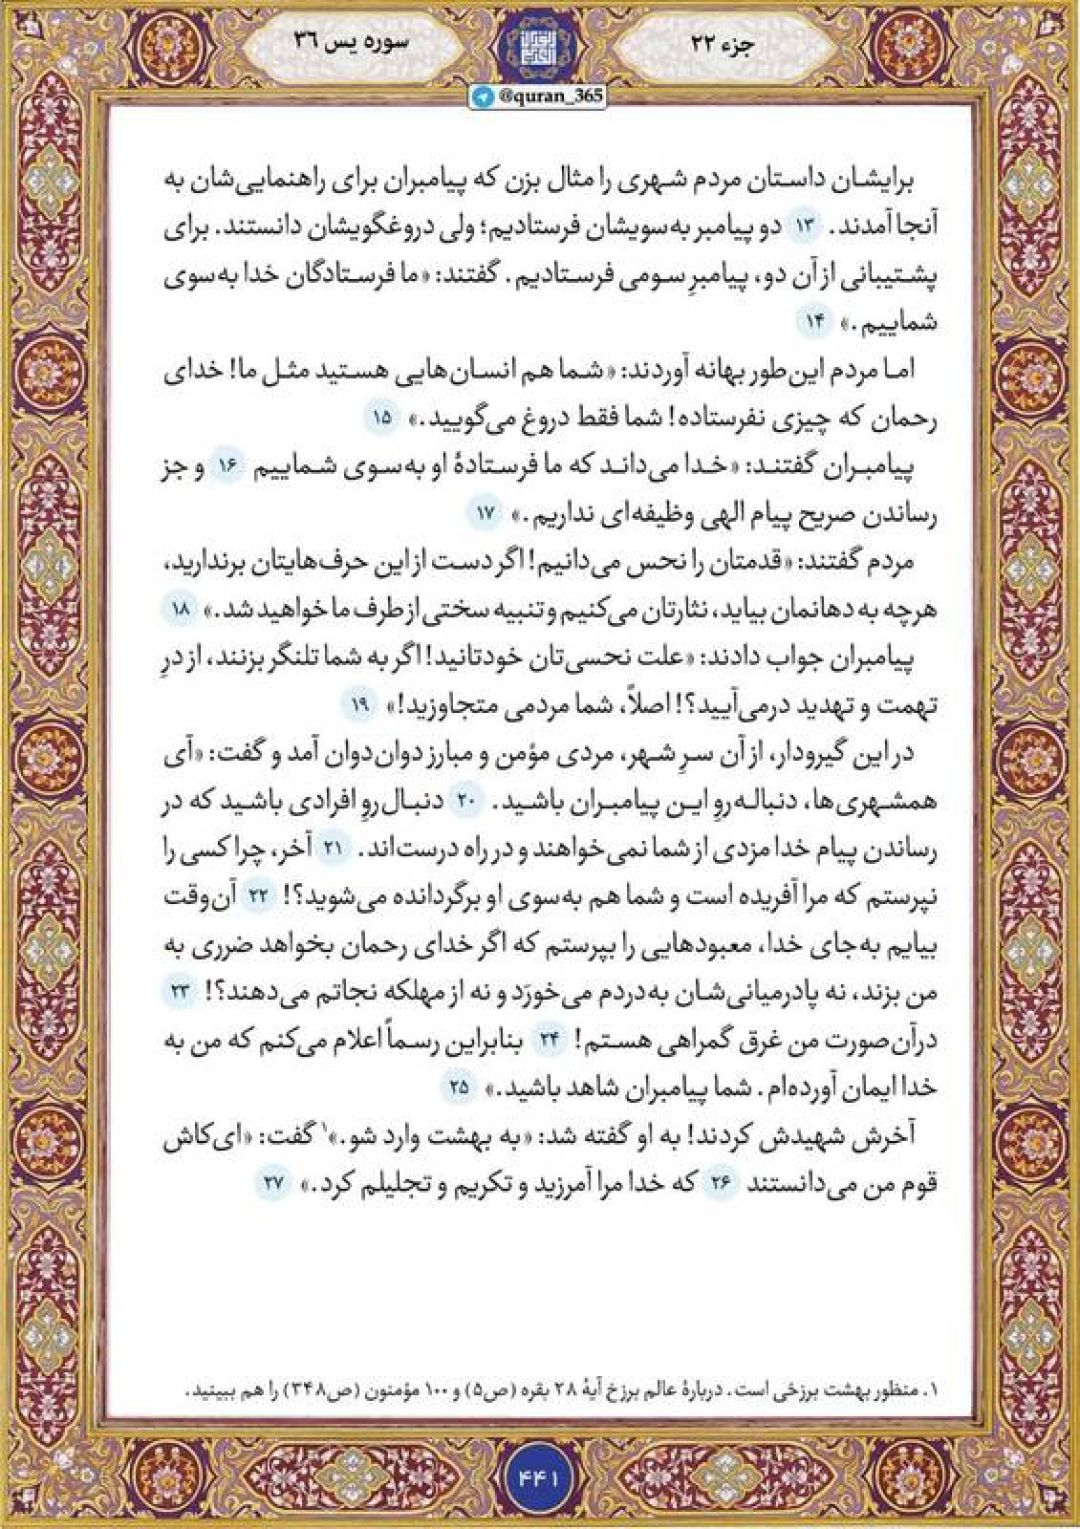 جزء ۲۲
سوره یس ۳۶
@quran_365
برایشان داستان مردم شهری را مثال بزن که پیامبران برای راهنمایی‌شان به
آنجا آمدند. ۱۳ دو پیامبر به‌سویشان فرستادیم؛ ولی دروغگویشان دانستند. برای
پشتیبانی از آن دو، پیامبرِ سومی فرستادیم. گفتند: «ما فرستادگان خدا به‌سوی
شماییم.» ۱۴
اما مردم این‌طور بهانه آوردند: «شما هم انسان‌هایی هستید مثل ما! خدای
رحمان که چیزی نفرستاده! شما فقط دروغ می‌گویید.» ۱۵
پیامبران گفتند: «خدا می‌داند که ما فرستادهٔ او به‌سوی شماییم ۱۶ و جز
رساندن صریح پیام الهی وظیفه‌ای نداریم.» ۱۷
مردم گفتند: «قدمتان را نحس می‌دانیم! اگر دست از این حرف‌هایتان برندارید،
هرچه به دهانمان بیاید، نثارتان می‌کنیم و تنبیه سختی از طرف ما خواهید شد.» ۱۸
پیامبران جواب دادند: «علت نحسی‌تان خودتانید! اگر به شما تلنگر بزنند، از درِ
تهمت و تهدید درمی‌آیید؟! اصلاً، شما مردمی متجاوزید!» ۱۹
در این گیرودار، از آن سرِ شهر، مردی مؤمن و مبارز دوان‌دوان آمد و گفت: «آی
همشهری‌ها، دنباله‌روِ این پیامبران باشید. ۲۰ دنبال‌روِ افرادی باشید که در
رساندن پیام خدا مزدی از شما نمی‌خواهند و در راه درست‌اند. ۲۱ آخر، چرا کسی را
نپرستم که مرا آفریده است و شما هم به‌سوی او برگردانده می‌شوید؟! ۲۲ آن‌وقت
بیایم به‌جای خدا، معبودهایی را بپرستم که اگر خدای رحمان بخواهد ضرری به
من بزند، نه پادرمیانی‌شان به‌دردم می‌خورَد و نه از مهلکه نجاتم می‌دهند؟! ۲۳
درآن‌صورت من غرق گمراهی هستم! ۲۴ بنابراین رسماً اعلام می‌کنم که من به
خدا ایمان آورده‌ام. شما پیامبران شاهد باشید.» ۲۵
آخرش شهیدش کردند! به او گفته شد: «به بهشت وارد شو.»۱ گفت: «ای‌کاش
قوم من می‌دانستند ۲۶ که خدا مرا آمرزید و تکریم و تجلیلم کرد.» ۲۷
۱. منظور بهشت برزخی است. دربارهٔ عالم برزخ آیهٔ ۲۸ بقره (ص۵) و ۱۰۰ مؤمنون (ص۳۴۸) را هم ببینید.
۴۴۱